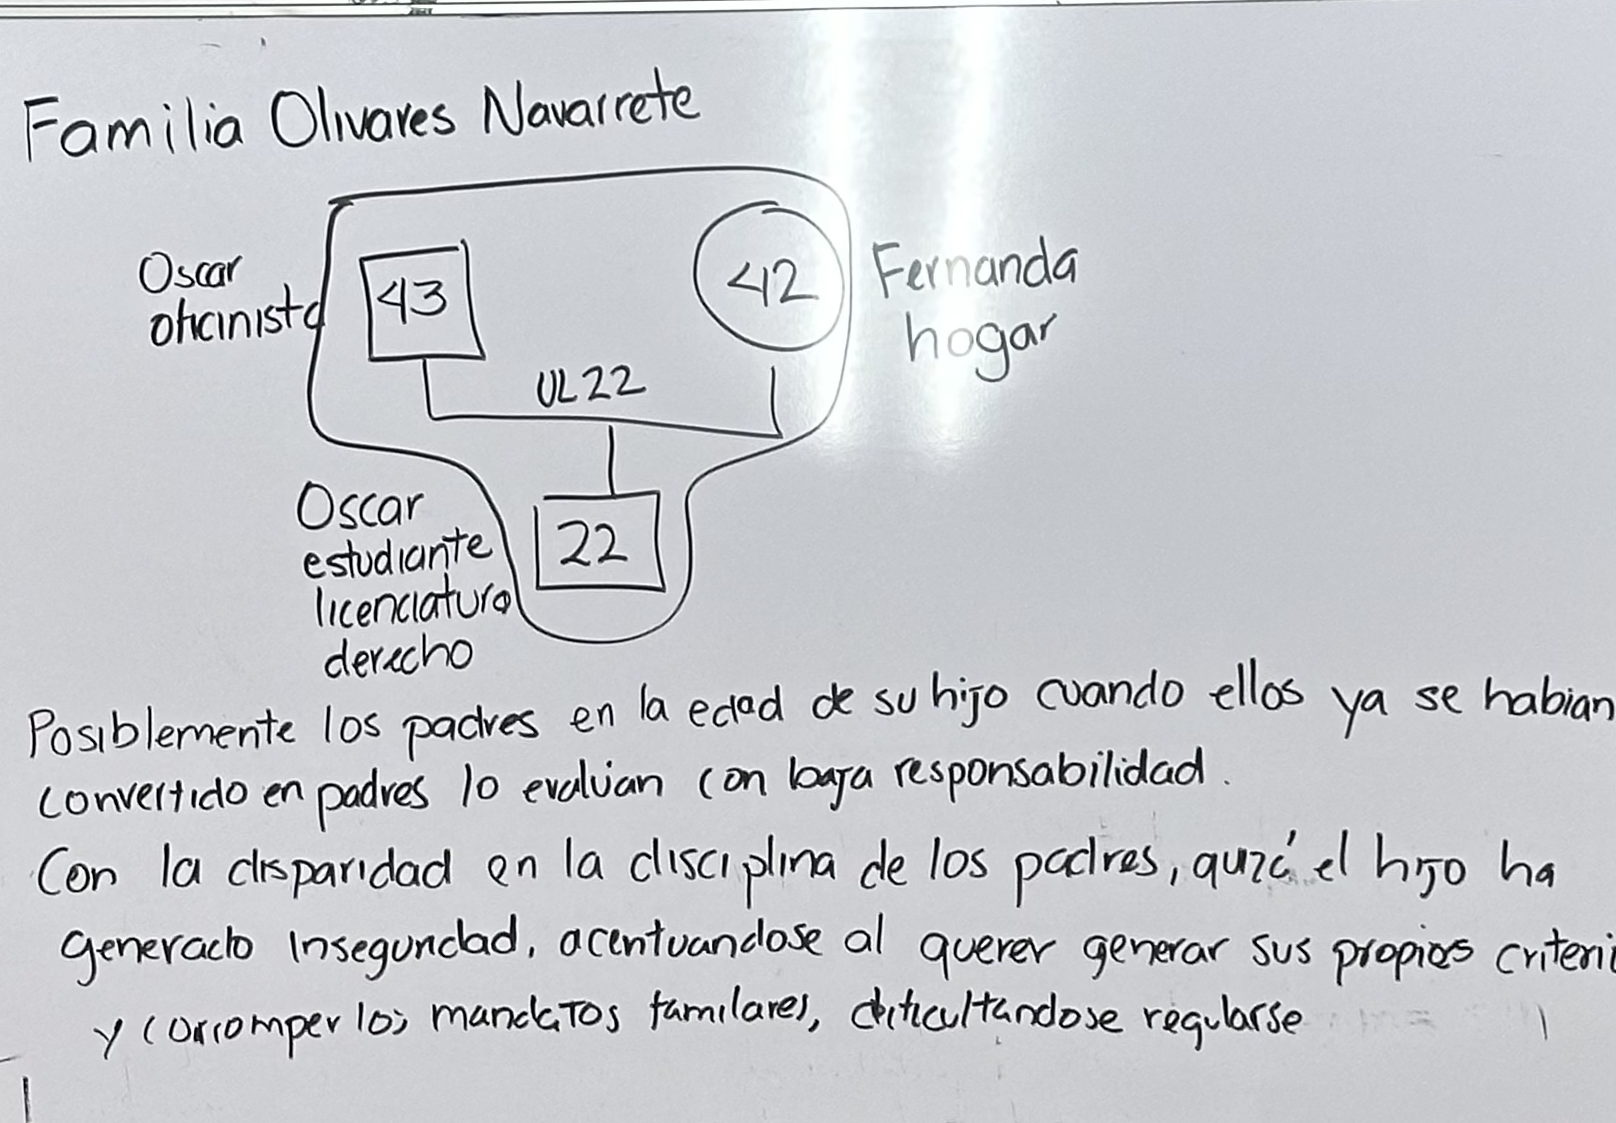 Familia Olivares Navarrete
Oscar
oficinista
43
42
Fernanda
hogar
UL22
Oscar
estudiante
licenciatura
derecho
22
Posiblemente los padres en la edad de su hijo cuando ellos ya se habian
convertido en padres lo evalúan con baja responsabilidad.
Con la disparidad en la disciplina de los padres, quizá el hijo ha
generado inseguridad, acentuandose al querer generar sus propios criteri
y corromper los mandatos familares, dificultandose regularse